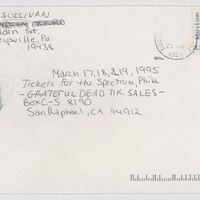 SULLIVAN
St.
eysville, Pa
19438
March 17,18,&19,1995
Tickets for the Spectrum, Phila
-GRATEFUL DEAD TIK SALES-
Box C-S 8190
San Raphael, CA 94912